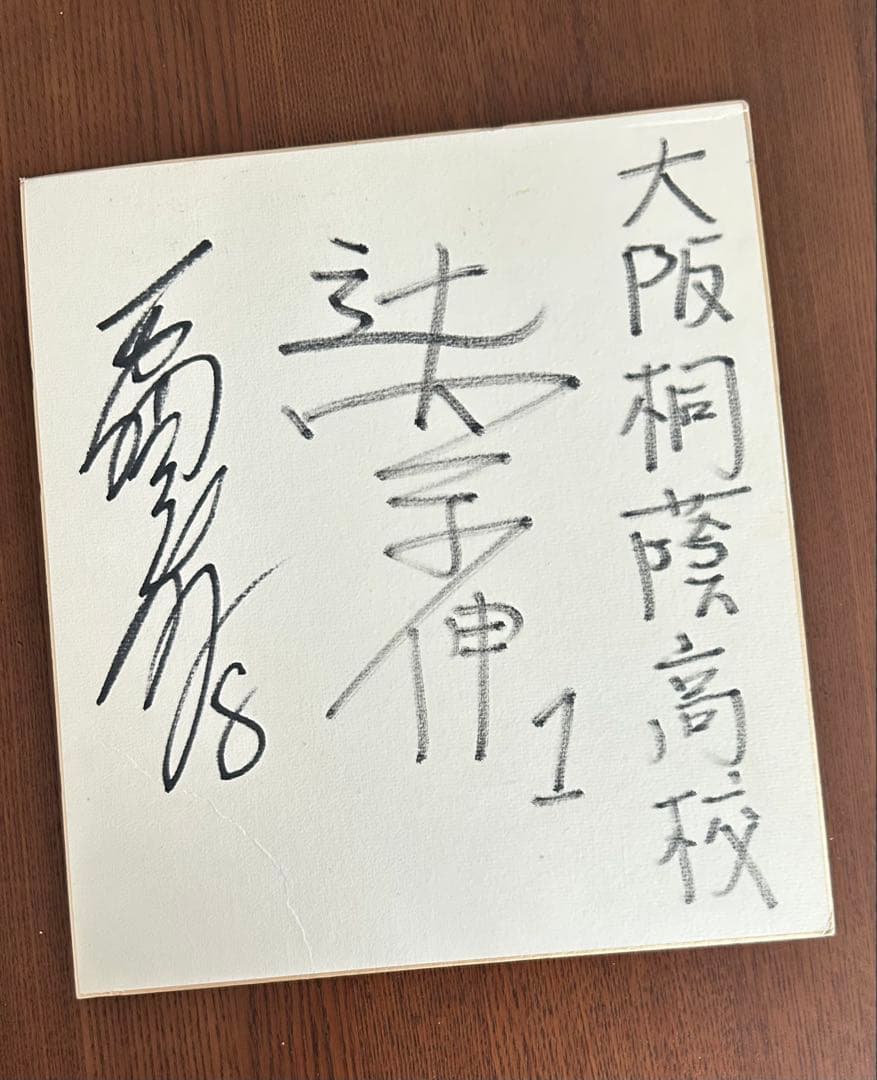 大阪桐蔭高校
辻内崇伸
1
8